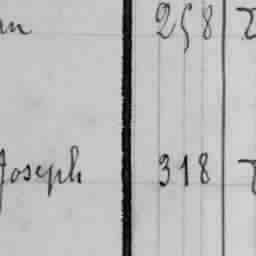 258
Joseph 318